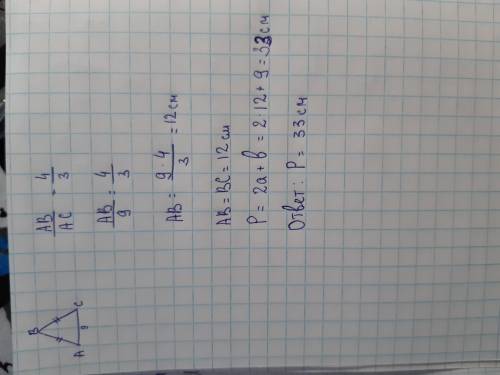 B
A 9 C
AB/AC = 4/3
AB/9 = 4/3
AB = 9 · 4/3 = 12 см
AB = BC = 12 см
P = 2a + b = 2 12 + 9 = 33 см
Ответ: P = 33 см